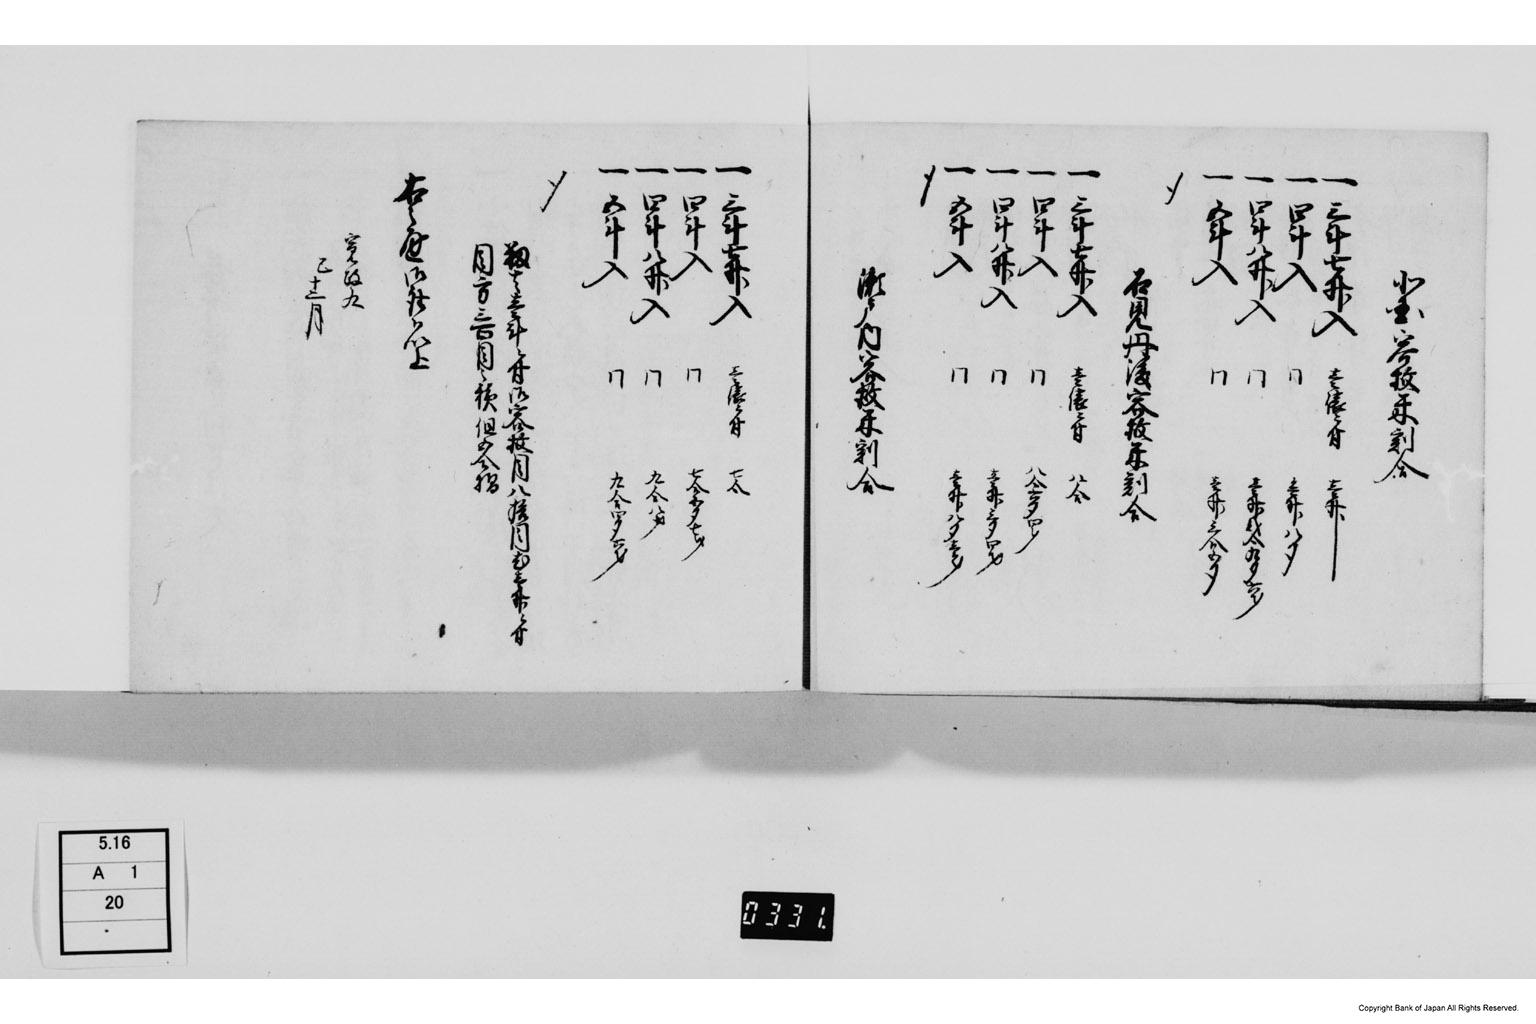 北国容捄米割合
一三斗七升入 壱俵ニ付 壱升
一四斗入 同 壱升八夕
一四斗八升入 同 壱升弐合九夕
一五斗入 同 壱升三合五夕
〆
石見丹後容捄米割合
一三斗七升入 壱俵ニ付 八合
一四斗入 同 八合六夕四才
一四斗八升入 同 壱升三夕四才
一五斗入 同 壱升八夕
〆
瀬戸内容捄米割合
一三斗七升入 壱俵ニ付 七合
一四斗入 同 七合五夕七才
一四斗八升入 同 九合八才
一五斗入 同 九合四夕六才
〆
目方三百目之積
右之通御座候以上
寛政九
巳十二月
5.16
A 1
20
0331.
Copyright Bank of Japan All Rights Reserved.